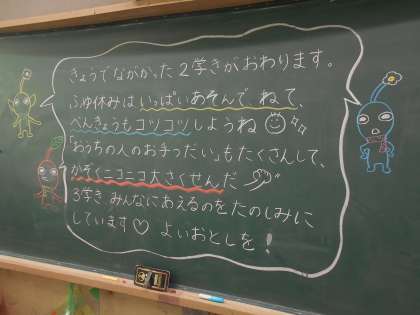 きょうでながかった2学きがおわります。
ふゆ休みはいっぱいあそんで、ねて、
べんきょうもコツコツしようね
「おうちの人のお手つだい」もたくさんして、
かぞくニコニコ大さくせんだ
3学き みんなにあえるのをたのしみに
しています♡ よいおとしを!